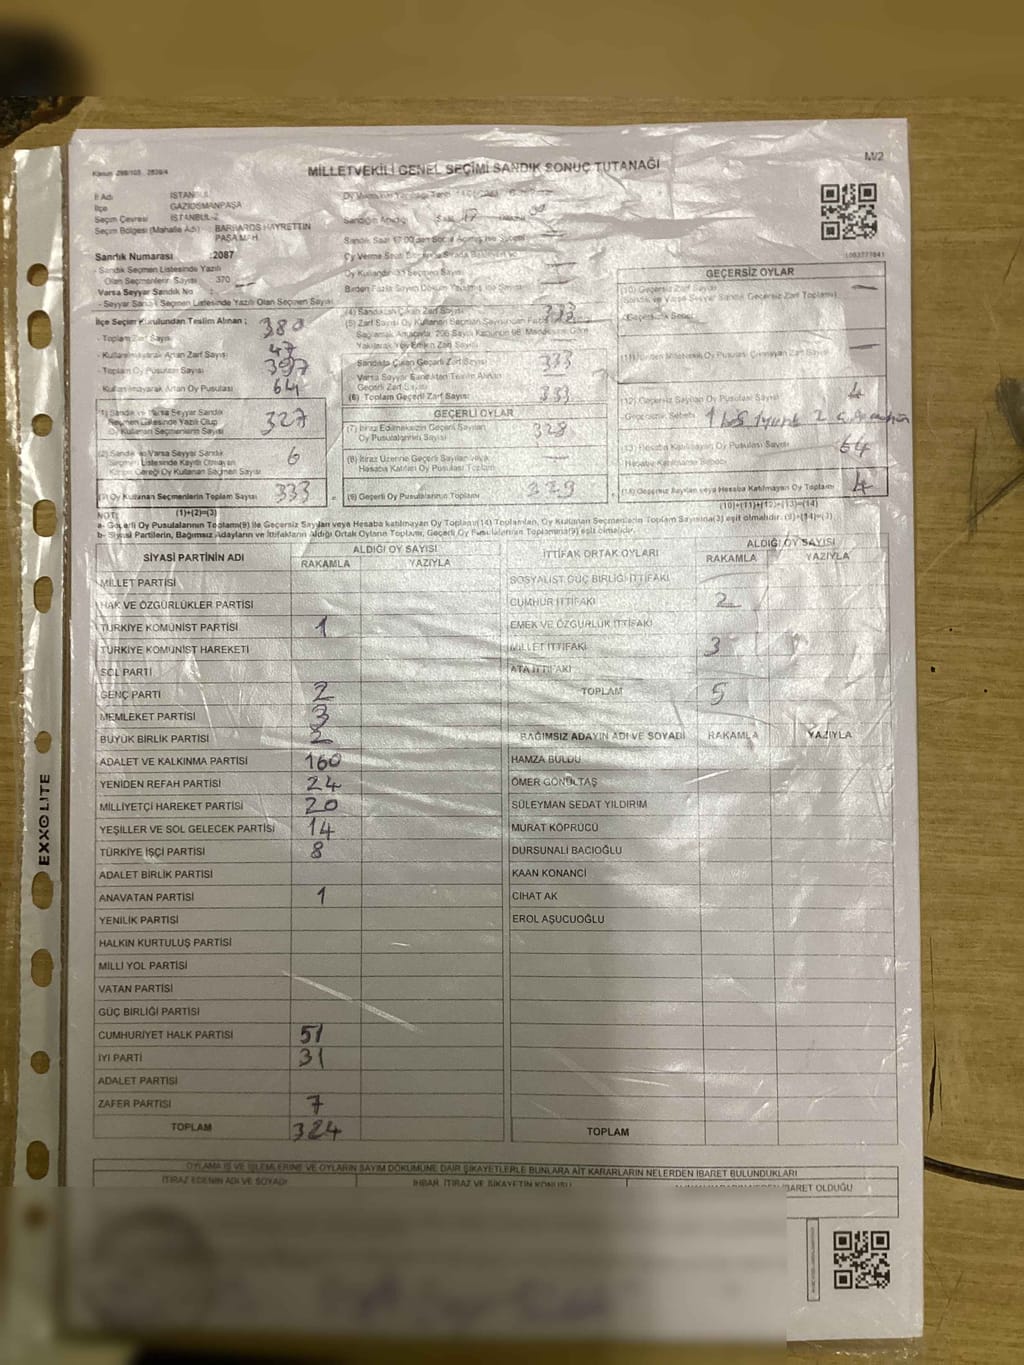 M/2
MİLLETVEKİLİ GENEL SEÇİMİ SANDIK SONUÇ TUTANAĞI
İl Adı İSTANBUL
İlçe GAZİOSMANPAŞA
Seçim Çevresi İSTANBUL-2
Seçim Bölgesi (Mahalle Adı) BARBAROS HAYRETTİN
PAŞA MAH.
Sandık Numarası :2087
- Sandık Seçmen Listesinde Yazılı
Olan Seçmenlerin Sayısı 370
Varsa Seyyar Sandık No
- Seyyar Sandık Seçmen Listesinde Yazılı Olan Seçmen Sayısı
İlçe Seçim Kurulundan Teslim Alınan ;
- Toplam Zarf Sayısı 380
- Kullanılmayarak Artan Zarf Sayısı 47
- Toplam Oy Pusulası Sayısı 397
- Kullanılmayarak Artan Oy Pusulası 64
(1) Sandık ve Varsa Seyyar Sandık
Seçmen Listesinde Yazılı Olup
Oy Kullanan Seçmenlerin Sayısı 327
(2) Sandık ve Varsa Seyyar Sandık
Seçmen Listesinde Kayıtlı Olmayan
Kanun Gereği Oy Kullanan Seçmen Sayısı 6
(3) Oy Kullanan Seçmenlerin Toplam Sayısı 333
(1)+(2)=(3)
(4) Sandıktan Çıkan Zarf Sayısı 333
Sandıkta Çıkan Geçerli Zarf Sayısı 333
Varsa Seyyar Sandıktan Teslim Alınan
Geçerli Zarf Sayısı
(6) Toplam Geçerli Zarf Sayısı: 333
GEÇERLİ OYLAR
(7) İtiraz Edilmeksizin Geçerli Sayılan
Oy Pusulalarının Sayısı 328
(8) İtiraz Üzerine Geçerli Sayılan veya
Hesaba Katılan Oy Pusulası Toplamı
(9) Geçerli Oy Pusulalarının Toplamı 329
GEÇERSİZ OYLAR
(10) Geçersiz Zarf Sayısı
(12) Geçersiz Sayılan Oy Pusulası Sayısı 4
(13) Hesaba Katılmayan Oy Pusulası Sayısı 64
Hesaba Katılmama Sebebi
(14) Geçersiz Sayılan veya Hesaba Katılmayan Oy Toplamı 4
(10)+(11)+(12)+(13)=(14)
NOT:
a- Geçerli Oy Pusulalarının Toplamı(9) ile Geçersiz Sayılan veya Hesaba katılmayan Oy Toplamı(14) Toplamları, Oy Kullanan Seçmenlerin Toplam Sayısına(3) eşit olmalıdır. (9)+(14)=(3)
b- Siyasi Partilerin, Bağımsız Adayların ve İttifakların Aldığı Ortak Oyların Toplamı, Geçerli Oy Pusulalarının Toplamına(9) eşit olmalıdır.
SİYASİ PARTİNİN ADI ALDIĞI OY SAYISI
RAKAMLA YAZIYLA
MİLLET PARTİSİ
HAK VE ÖZGÜRLÜKLER PARTİSİ
TÜRKİYE KOMÜNİST PARTİSİ 1
TÜRKİYE KOMÜNİST HAREKETİ
SOL PARTİ
GENÇ PARTİ 2
MEMLEKET PARTİSİ 3
BÜYÜK BİRLİK PARTİSİ 2
ADALET VE KALKINMA PARTİSİ 160
YENİDEN REFAH PARTİSİ 24
MİLLİYETÇİ HAREKET PARTİSİ 20
YEŞİLLER VE SOL GELECEK PARTİSİ 14
TÜRKİYE İŞÇİ PARTİSİ 8
ADALET BİRLİK PARTİSİ
ANAVATAN PARTİSİ 1
YENİLİK PARTİSİ
HALKIN KURTULUŞ PARTİSİ
MİLLİ YOL PARTİSİ
VATAN PARTİSİ
GÜÇ BİRLİĞİ PARTİSİ
CUMHURİYET HALK PARTİSİ 51
İYİ PARTİ 31
ADALET PARTİSİ
ZAFER PARTİSİ 7
TOPLAM 324
İTTİFAK ORTAK OYLARI ALDIĞI OY SAYISI
RAKAMLA YAZIYLA
SOSYALİST GÜÇ BİRLİĞİ İTTİFAKI
CUMHUR İTTİFAKI 2
EMEK VE ÖZGÜRLÜK İTTİFAKI
MİLLET İTTİFAKI 3
ATA İTTİFAKI
TOPLAM 5
BAĞIMSIZ ADAYIN ADI VE SOYADI RAKAMLA YAZIYLA
HAMZA BULDU
ÖMER GÖNÜLTAŞ
SÜLEYMAN SEDAT YILDIRIM
MURAT KÖPRÜCÜ
DURSUNALİ BACIOĞLU
KAAN KONANCİ
CİHAT AK
EROL AŞUCUOĞLU
TOPLAM
OYLAMA İŞ VE İŞLEMLERİNE VE OYLARIN SAYIM DÖKÜMÜNE DAİR ŞİKAYETLERLE BUNLARA AİT KARARLARIN NELERDEN İBARET BULUNDUKLARI
İTİRAZ EDENİN ADI VE SOYADI İHBAR, İTİRAZ VE ŞİKAYETİN KONUSU
EXXO LITE